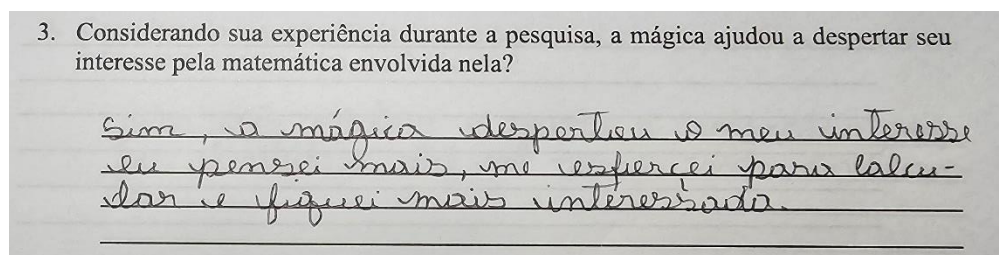 3. Considerando sua experiência durante a pesquisa, a mágica ajudou a despertar seu
interesse pela matemática envolvida nela?
Sim, a mágica despertou o meu interesse
eu pensei mais, me esfiercei para calcu-
lar e fiquei mais interessada.